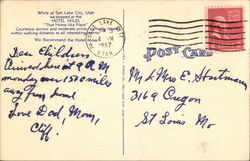 While at Salt Lake City, Utah
we stopped at the
HOTEL MILES
"That Home-like Place"
Courteous service and moderate prices
within walking distance to all interesting
We Recommend the Hotel Miles
SALT LAKE CITY
PM
1957
UTAH
POST CARD
Dear Children
Arrived here at 9 AM
monday over 1500 miles
away from home
Love Dad, Mom,
Cliff.
Mr & Mrs E. Hartmann
3162 Oregon
St Louis Mo